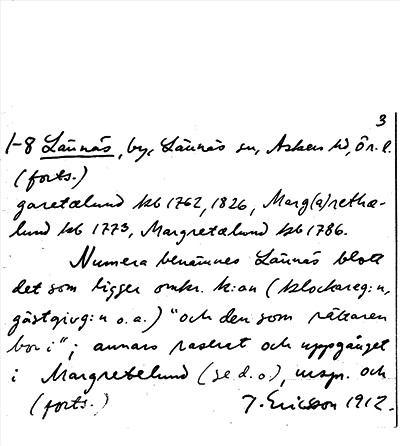 3
1-8 Lännäs, by, Lännäs sn, Askers hd, Ör. l.
(forts.)
garetælund kb 1762, 1826, Marg(a)retha-
lund kb 1773, Margretælund kb 1786.
Numera benämnes Lännäs blott
det som ligger omkr. k:an (klockareg:n,
gästgivg:n o.a.) "och den som rättaren
bor i"; annars raserat och uppgånget
i Margretelund (se d.o.), urspr. och
(forts.) J. Ericsson 1912.